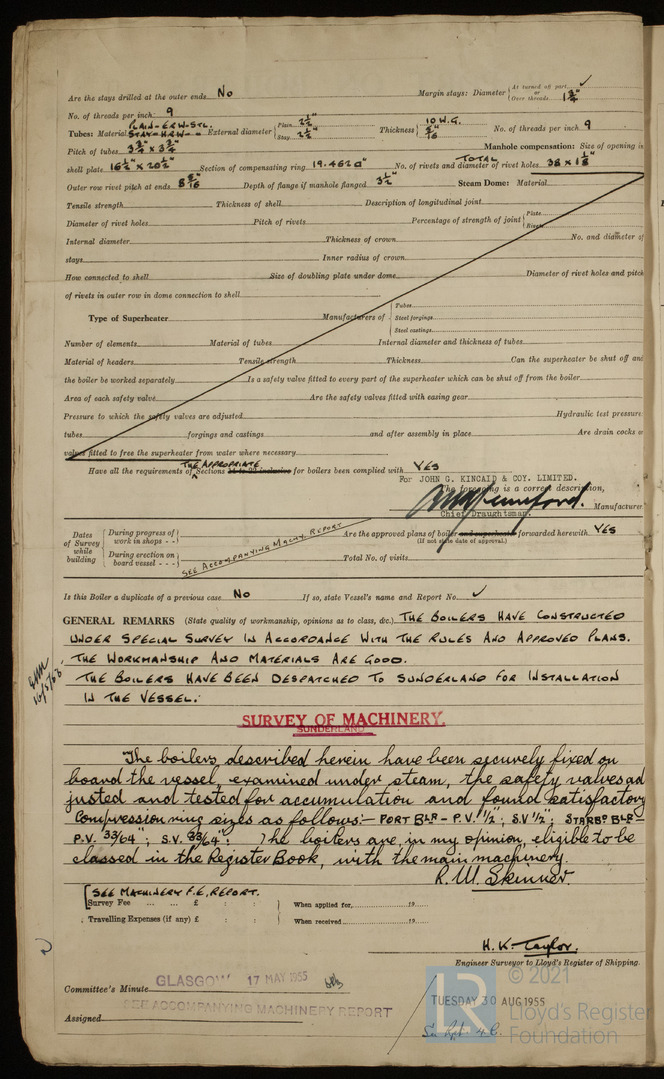 Are the stays drilled at the outer ends No Margin stays: Diameter { At turned off part ✓ or Over threads 1 3/4"
No. of threads per inch 9
Tubes: Material PLAIN - E.R.W. STL. STAY - H.R.W. External diameter { Plain 2 1/2" Stay 2 1/2" Thickness { 10 W.G. 5/16" No. of threads per inch 9
Pitch of tubes 3 3/4" x 3 3/4" Manhole compensation: Size of opening in
shell plate 16 1/2" x 20 1/2" Section of compensating ring 19.462 □" No. of rivets and diameter of rivet holes TOTAL 38 x 1 1/8"
Outer row rivet pitch at ends 8 9/16" Depth of flange if manhole flanged 3 1/2" Steam Dome: Material
Tensile strength Thickness of shell Description of longitudinal joint
Diameter of rivet holes Pitch of rivets Percentage of strength of joint { Plate Rivets
Internal diameter Thickness of crown No. and diameter of
stays Inner radius of crown
How connected to shell Size of doubling plate under dome Diameter of rivet holes and pitch
of rivets in outer row in dome connection to shell
Type of Superheater Manufacturers of { Tubes Steel forgings Steel castings
Number of elements Material of tubes Internal diameter and thickness of tubes
Material of headers Tensile strength Thickness Can the superheater be shut off and
the boiler be worked separately Is a safety valve fitted to every part of the superheater which can be shut off from the boiler
Area of each safety valve Are the safety valves fitted with easing gear
Pressure to which the safety valves are adjusted Hydraulic test pressure
tubes forgings and castings and after assembly in place Are drain cocks or
valves fitted to free the superheater from water where necessary
Have all the requirements of THE APPROPRIATE Sections for boilers been complied with YES
For JOHN G. KINCAID & COY. LIMITED.
The foregoing is a correct description,
Manufacturer
Chief Draughtsman.
Dates of Survey while building { During progress of work in shops - - During erection on board vessel - - - SEE ACCOMPANYING MACHY. REPORT
Are the approved plans of boiler and superheater forwarded herewith YES
(If not state date of approval.)
Total No. of visits
Is this Boiler a duplicate of a previous case No If so, state Vessel's name and Report No. ✓
GENERAL REMARKS (State quality of workmanship, opinions as to class, &c.) THE BOILERS HAVE CONSTRUCTED
UNDER SPECIAL SURVEY IN ACCORDANCE WITH THE RULES AND APPROVED PLANS.
THE WORKMANSHIP AND MATERIALS ARE GOOD.
THE BOILERS HAVE BEEN DESPATCHED TO SUNDERLAND FOR INSTALLATION
IN THE VESSEL.
SURVEY OF MACHINERY.
SUNDERLAND
The boilers described herein have been securely fixed on
board the vessel, examined under steam, the safety valves ad
justed and tested for accumulation and found satisfactory
Compression ring sizes as follows:- PORT BLR - P.V. 1/2"; S.V 1/2"; STARBD BLR -
P.V. 33/64"; S.V. 33/64". The boilers are, in my opinion, eligible to be
classed in the Register Book, with the main machinery.
R. W. Skinner.
SEE MACHINERY F.E. REPORT.
Survey Fee ... ... £ : : } When applied for, 19
Travelling Expenses (if any) £ : : } When received 19
H. K. Taylor.
Engineer Surveyor to Lloyd's Register of Shipping.
Committee's Minute GLASGOW 17 MAY 1955
SEE ACCOMPANYING MACHINERY REPORT
Assigned
TUESDAY 30 AUG 1955
LR
© 2021
Lloyd's Register
Foundation